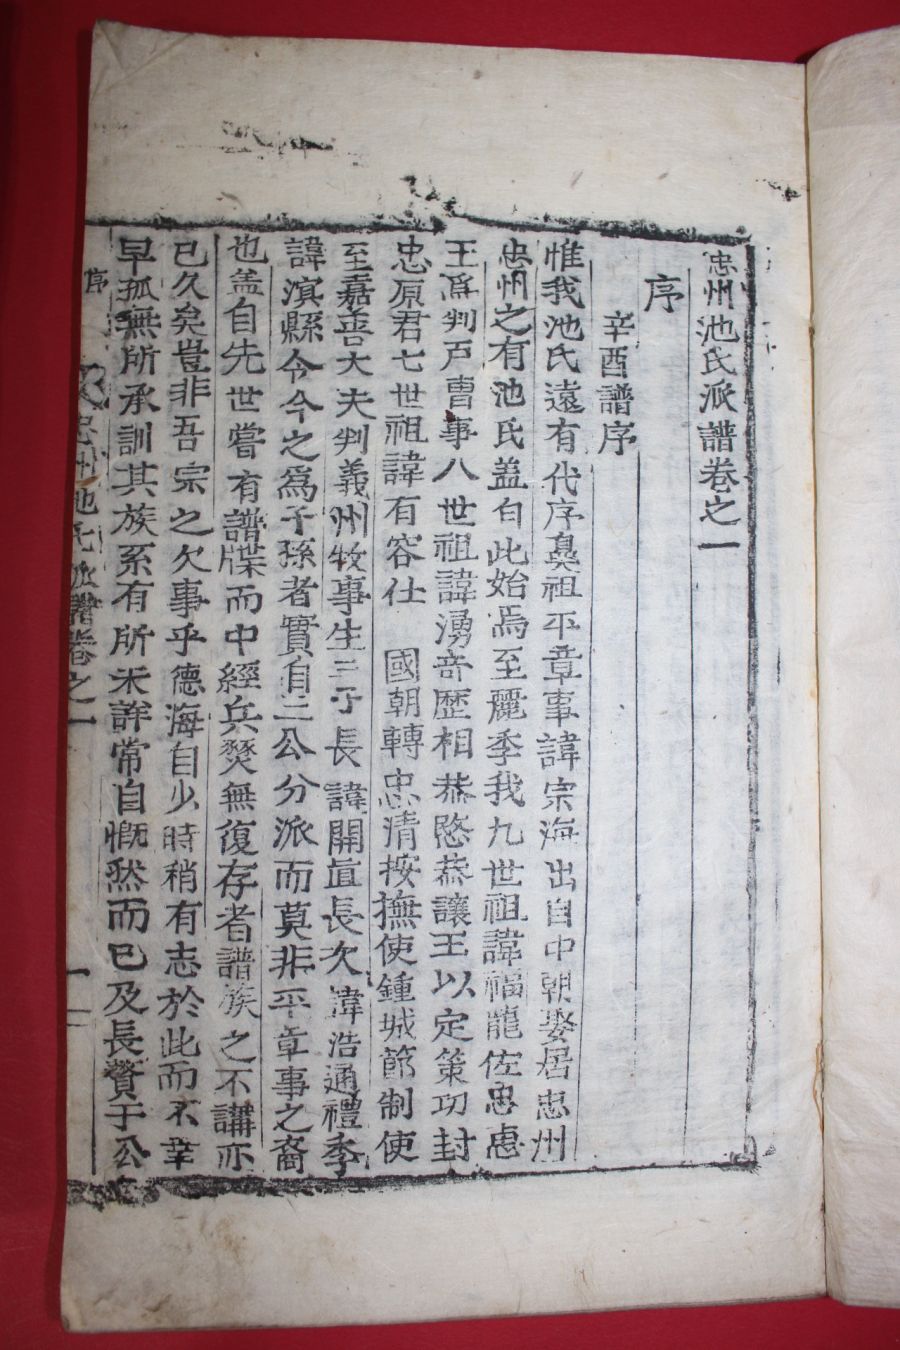 忠州池氏派譜卷之一
序
辛酉譜序
惟我池氏遠有代序鼻祖平章事諱宗海出自中朝娶居忠州
忠州之有池氏盖自此始焉至麗季我九世祖諱福龍佐忠惠
王爲判戶曹事八世祖諱湧奇歷相恭愍恭讓王以定策功封
忠原君七世祖諱有容仕 國朝轉忠淸按撫使鍾城節制使
至嘉善大夫判義州牧事生三子長諱開直長次諱浩通禮季
諱濱縣令今之爲子孫者實自三公分派而莫非平章事之裔
也盖自先世嘗有譜牒而中經兵燹無復存者譜族之不講亦
已久矣豈非吾宗之欠事乎德海自少時稍有志於此而不幸
早孤無所承訓其族系有所未詳常自慨然而已及長贅于公
序 忠州池氏派譜卷之一 一